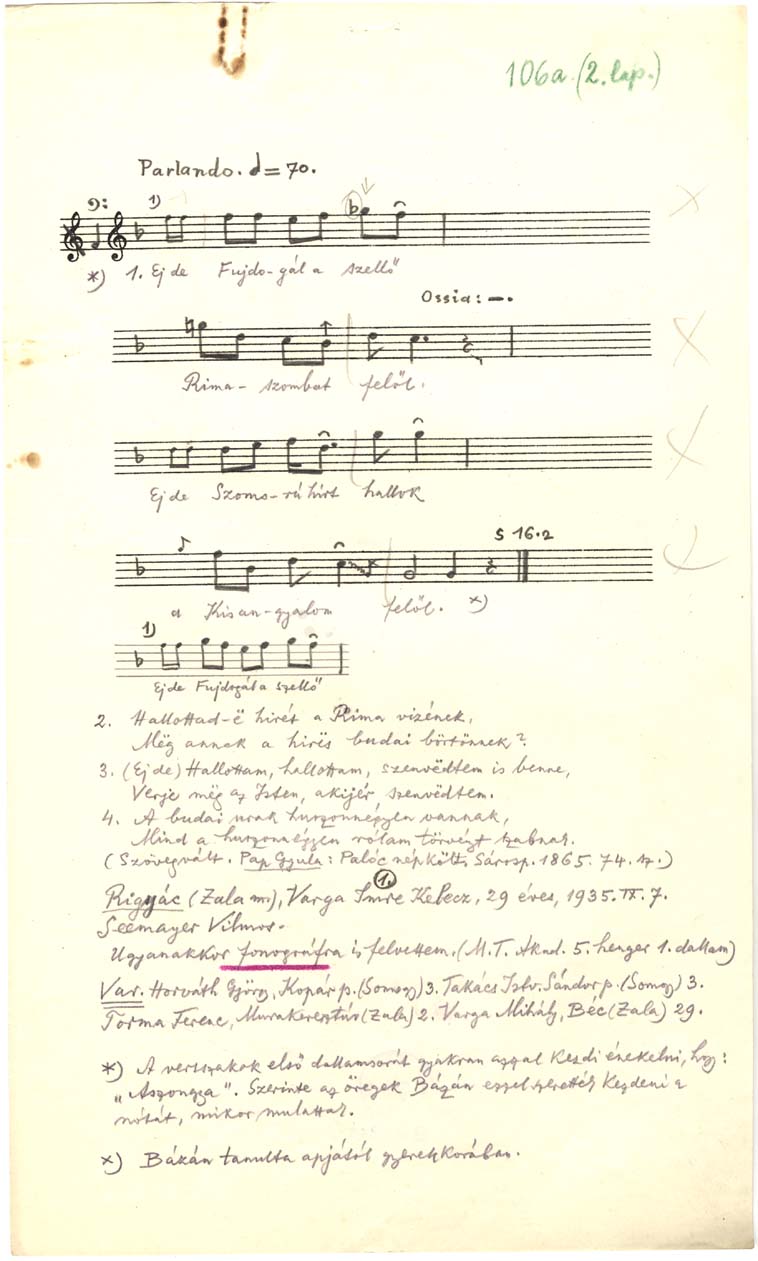 106a. (2. lap.)
Parlando. = 70.
1)
*) 1. Ej de Fujdo-gál a szellő
Ossia:
Rima- szombat felől.
Ej de Szomo-rú hírt hallok
S 16.2
a Kis an-gyalom felől. ×)
1)
Ej de Fujdogál a szellő
2. Hallottad-ë hirét a Rima vizének,
Még annak a hirës budai börtönnek?
3. (Ej de) Hallottam, hallottam, szenvedtem is benne,
Verje mëg az Isten, a kijér szenvedtem.
4. A budai urak huszonnégyen vannak,
Mind a huszonnégyen rólam törvényt szabnak.
(Szövegvált. Pap Gyula: Palóc népkölt. Sárosp. 1865. 74. .)
1.
Rigyác (Zala m.), Varga Imre Kelecz, 29 éves, 1935. IX. 7.
Seemayer Vilmos.
Ugyanakkor fonográfra is felvettem. (M.T. Akad. 5. henger 1. dallam)
Var. Horváth György, Kopár p. (Somogy) 3. Takács Istv. Sándor p. (Somogy) 3.
Torma Ferenc, Murakeresztúr (Zala) 2. Varga Mihály, Béc (Zala) 29.
*) A versszakok első dallamsorát gyakran azzal kezdi énekelni, hogy:
„Aszongya". Szerinte az öregek Bázán ezzel szerették kezdeni a
nótát, mikor mulattak.
×) Bázán tanulta apjától gyerekkorában.